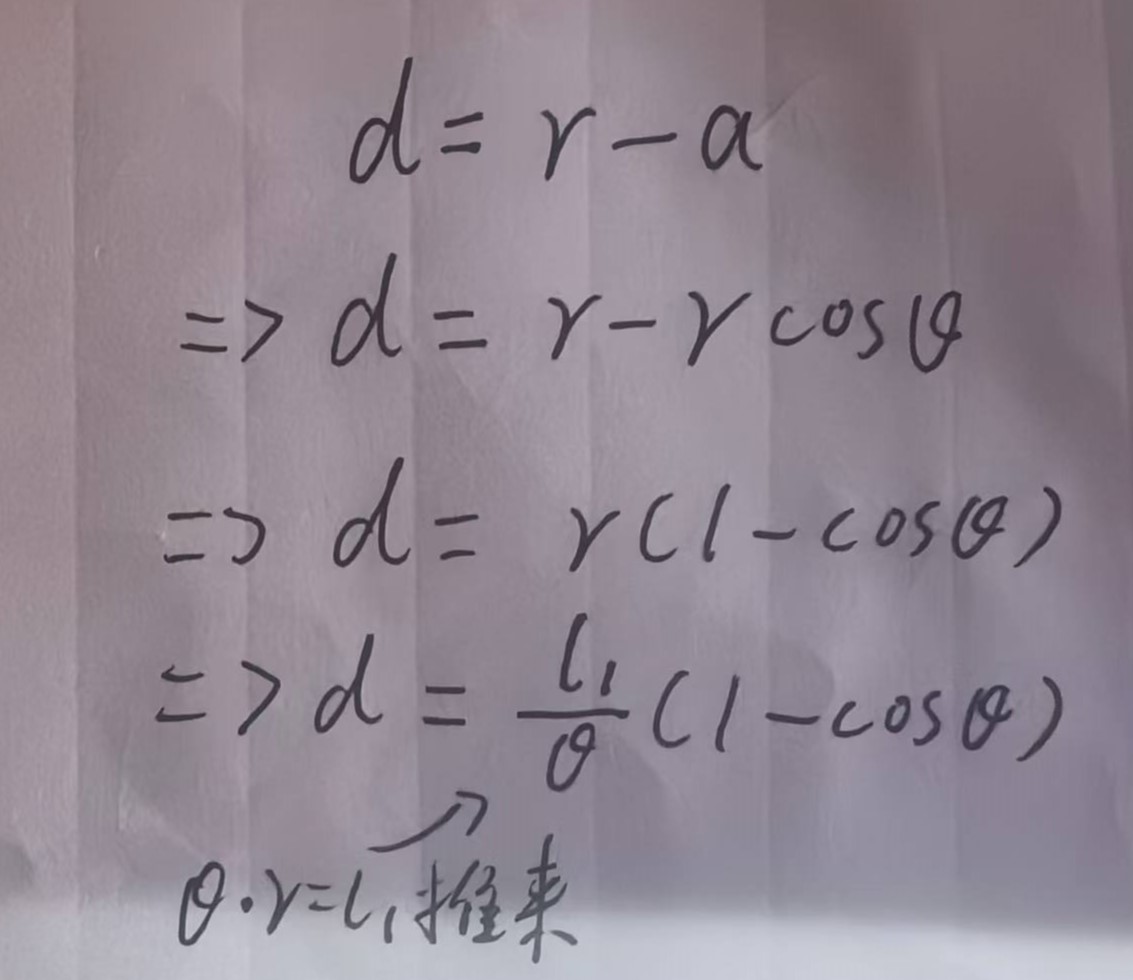 d = r - a
=> d = r - r cosθ
=> d = r(1 - cosθ)
=> d = l₁/θ (1 - cosθ)
θ·r=l₁推来